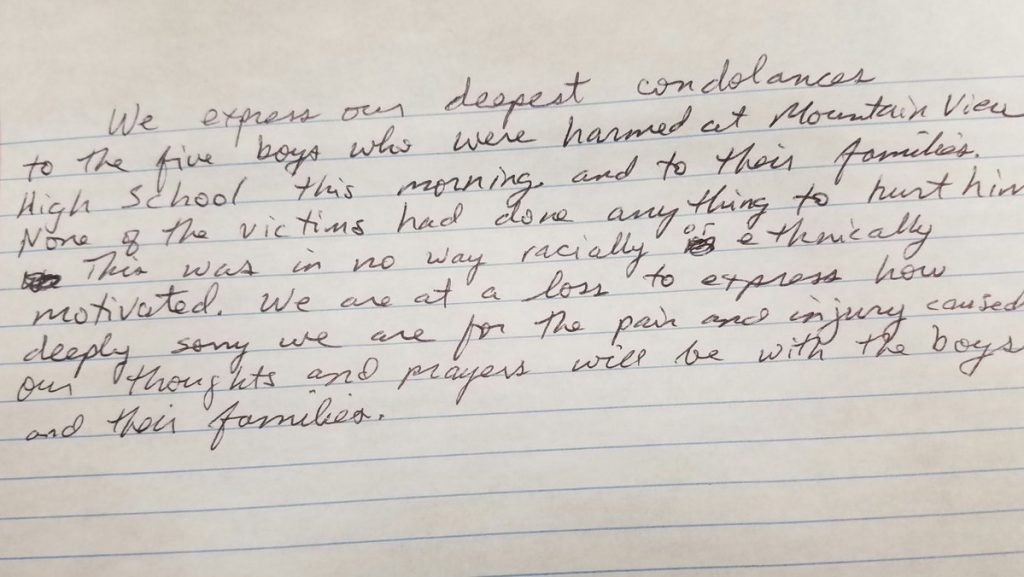 We express our deepest condolances
to the five boys who were harmed at Mountain View
High School this morning. and to their families.
None of the victims had done anything to hurt him
This was in no way racially or ethnically
motivated. We are at a loss to express how
deeply sorry we are for the pain and injury caused
our thoughts and prayers will be with the boys
and their families.